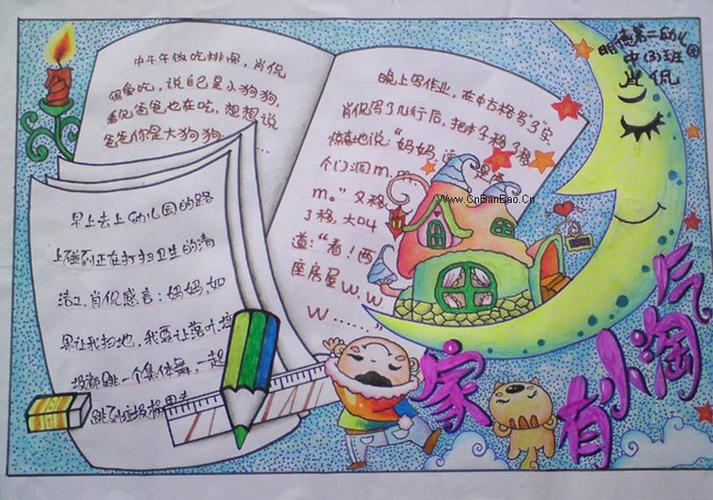 中午午做吃排骨,肖侃
很爱吃,说自己是小狗狗,
看见爸爸也在吃,想想说
爸爸你是大狗狗……
早上去上幼儿园的路
上碰到正在打扫卫生的清
洁工,肖侃感言:妈妈,如
果让我扫地,我要让落叶、垃
圾都跳一个集体舞,一起
跳到垃圾桶里去
晚上写作业,在田字格写了
肖侃写了几行后,把本子移了移
惊喜地说:“妈妈,
个门洞m.
m。”又移
了移,大叫
道:“看!两
座房屋W,W
W……,”
明德第二幼儿园
中(3)班
肖侃
www.CnBanBao.Cn
家有小淘气